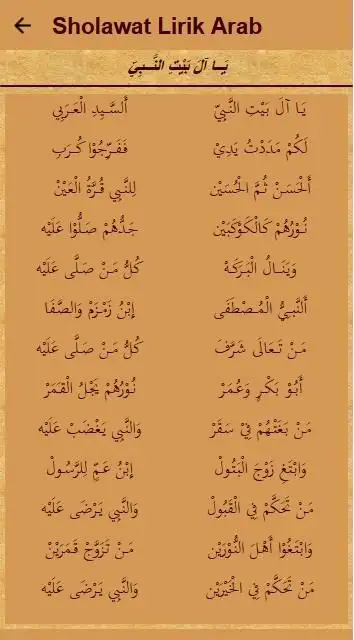 Sholawat Lirik Arab
يَـا آلَ بَيْتِ النَّــبِيّ
يَا آلَ بَيْتِ النَّبِيّ أَلسَّـيِدِ الْعَـرَبِي
لَكُمْ مَدَدْتُ يَدِيْ فَفَـرِّجُوْا كُـرَبِ
أَلْحَسَنْ ثُمَّ الْحُسَيْن لِلنَّبِي قُـرَّةُ الْعَيْنْ
نُـوْرُهُمْ كَالْكَوْكَبَيْن جَدُّهُمْ صَـلُّوْا عَلَيْه
وَيَنَـالُ الْبَـرَكَـةْ كُلُّ مَـنْ صَلَّى عَلَيْه
أَلنَّبِيُّ الْمُـصْطَفَى إِبْنُ زَمْـزَمْ وَالصَّفَا
مَـنْ تَـعَالَى شَرَّفَ كُلُّ مَـنْ صَلَّى عَلَيْه
أَبُوْ بَكْرٍ وَعُمَرْ نُـوْرُهُمْ يَخْجُلُ الْقَمَرْ
مَـنْ بَغَـتْهُمْ فِيْ سَقَرْ وَالنَّبِي يَغْضَبْ عَلَيْه
وَابْتَغِ زَوْجَ الْبَتُولْ إِبْنُ عَـمٍّ لِلرَّسُـولْ
مَـنْ تَحَكَّمْ فِي الْقَبُولْ وَالنَّبِي يَـرْضَى عَلَيْه
وَابْتَغُوْا أَهْـلَ النُّوْرَيْن مَـنْ تَزَوَّجْ قَمَـرَيْنْ
مَـنْ تَحَكَّمْ فِي الْخَيْرَيْن وَالنَّبِي يَـرْضَى عَلَيْه